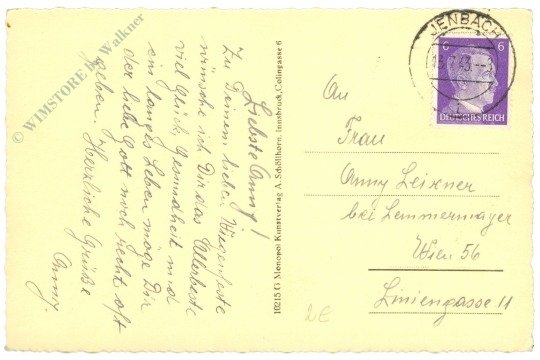 Liebste Anny!
Zu Deinem lieben Wiegenfeste
wünsche ich Dir das Allerbeste
viel Glück, Gesundheit und
ein langes Leben möge Dir
der liebe Gott noch recht oft
geben. Herzliche Grüße
Anny.
10215 G Monopol Kunstverlag A. Schöllhorn, Innsbruck, Colingasse 6
JENBACH
43
6 6
DEUTSCHES REICH
An
Frau
Anny Leixner
bei Lemmermayer
Wien 56
Liniengasse 11
2€
© WIMSTORE by Walkner